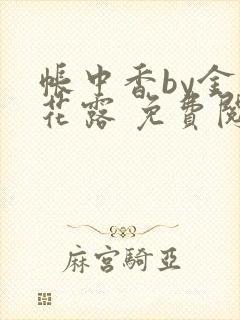 帳中香by金
花露 免費閱
麻宮騎亞